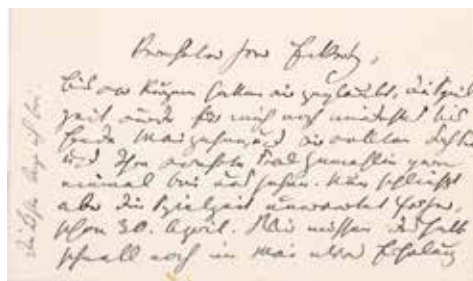 Herr
bis vor Kurzem hatten wir geglaubt, die Spiel
zeit würde für mich noch mindestens bis
Ende Mai und wir wollten
und Ihre verehrte Frau Gemahlin gern
einmal bei uns sehen. Nun schließt
aber die Spielzeit unerwartet früher,
schon 30. April. Wir müssen deshalb
schnell noch im Mai etwas Erholung